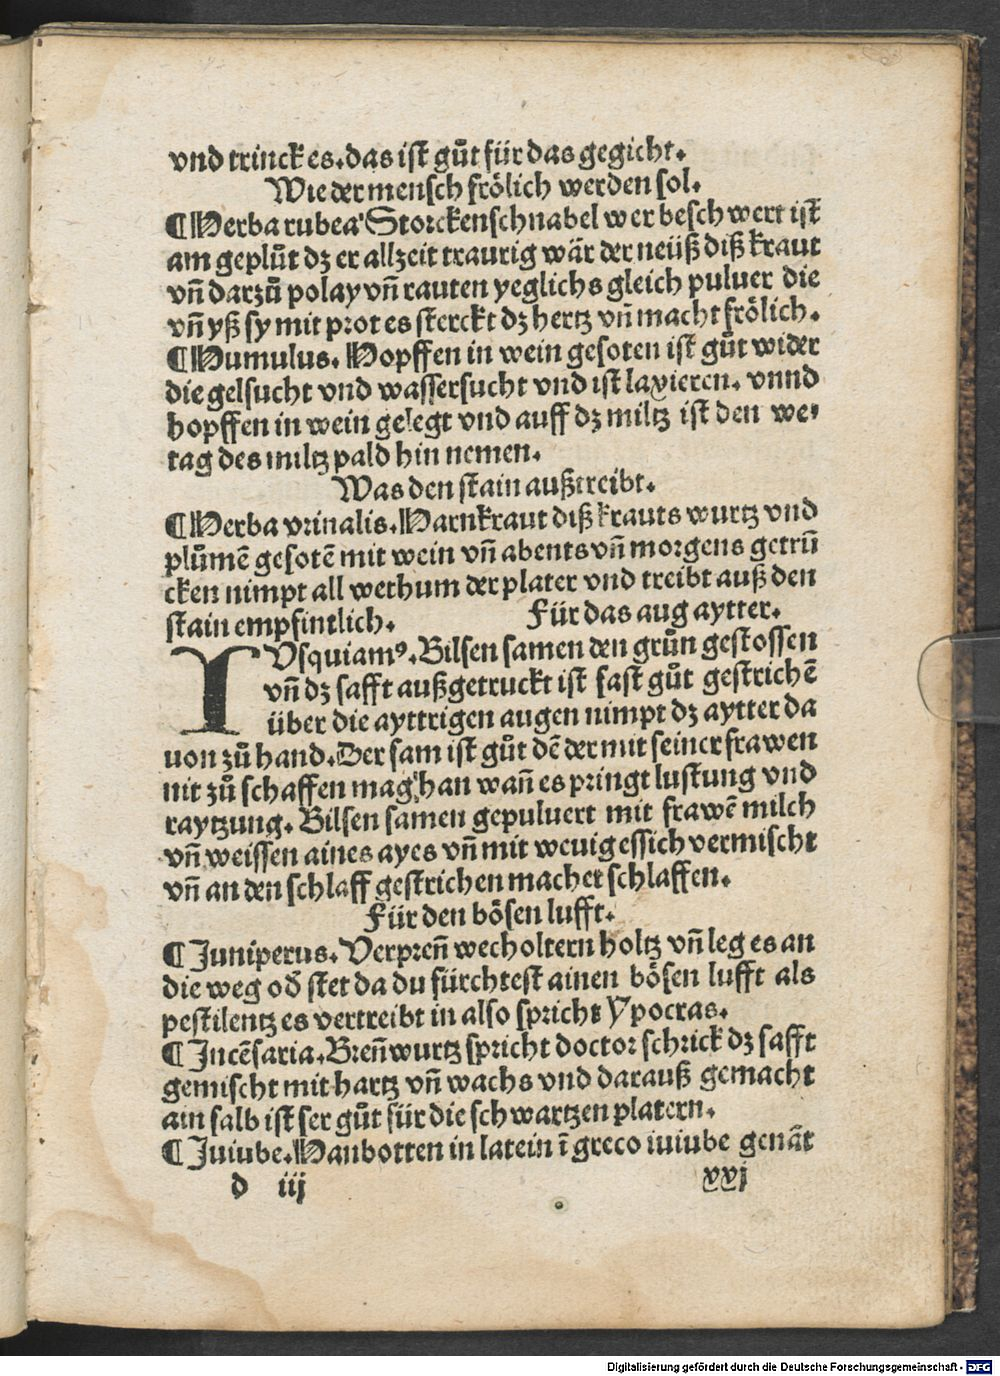 vnd trinck es. das ist gůt für das gegicht.
Wie der mensch frölich werden sol.
¶ Herba rubea Storckenschnabel wer beschwert ist
am geplůt dz er allzeit traurig wär der neüß diß kraut
vñ darzů polay vñ rauten yeglichs gleich puluer die
vñ yß sy mit prot es sterckt dz hertz vñ macht frölich.
¶ Humulus. Hopffen in wein gesoten ist gůt wider
die gelsucht vnd wassersucht vnd ist laxieren. vnnd
hopffen in wein gelegt vnd auff dz miltz ist den we⸗
tag des miltz pald hin nemen.
Was den stain außtreibt.
¶ Herba vrinalis. Harnkraut diß krauts wurtz vnd
plůmē gesotē mit wein vñ abents vñ morgens getrū
cken nimpt all wethum der plater vnd treibt auß den
stain empfintlich. Für das aug aytter.
IUsquiamꝰ. Bilsen samen den grůn gestossen
vñ dz safft außgetruckt ist fast gůt gestrichē
über die ayttrigen augen nimpt dz aytter da
uon zů hand. Der sam ist gůt dē der mit seiner frawen
nit zů schaffen mag han wañ es pringt lustung vnd
raytzung. Bilsen samen gepuluert mit frawē milch
vñ weissen aines ayes vñ mit wenig essich vermischt
vñ an den schlaff gestrichen machet schlaffen.
Für den bösen lufft.
¶ Juniperus. Verpreñ wecholtern holtz vñ leg es an
die weg oď stet da du fürchtest ainen bösen lufft als
pestilentz es vertreibt in also spricht Ypocras.
¶ Incēsaria. Breñwurtz spricht doctor schrick dz safft
gemischt mit hartz vñ wachs vnd darauß gemacht
ain salb ist ser gůt für die schwartzen platern.
¶ Juiube. Hanbotten in latein ī greco iuiube genāt
d iij xxj
Digitalisierung gefördert durch die Deutsche Forschungsgemeinschaft - DFG